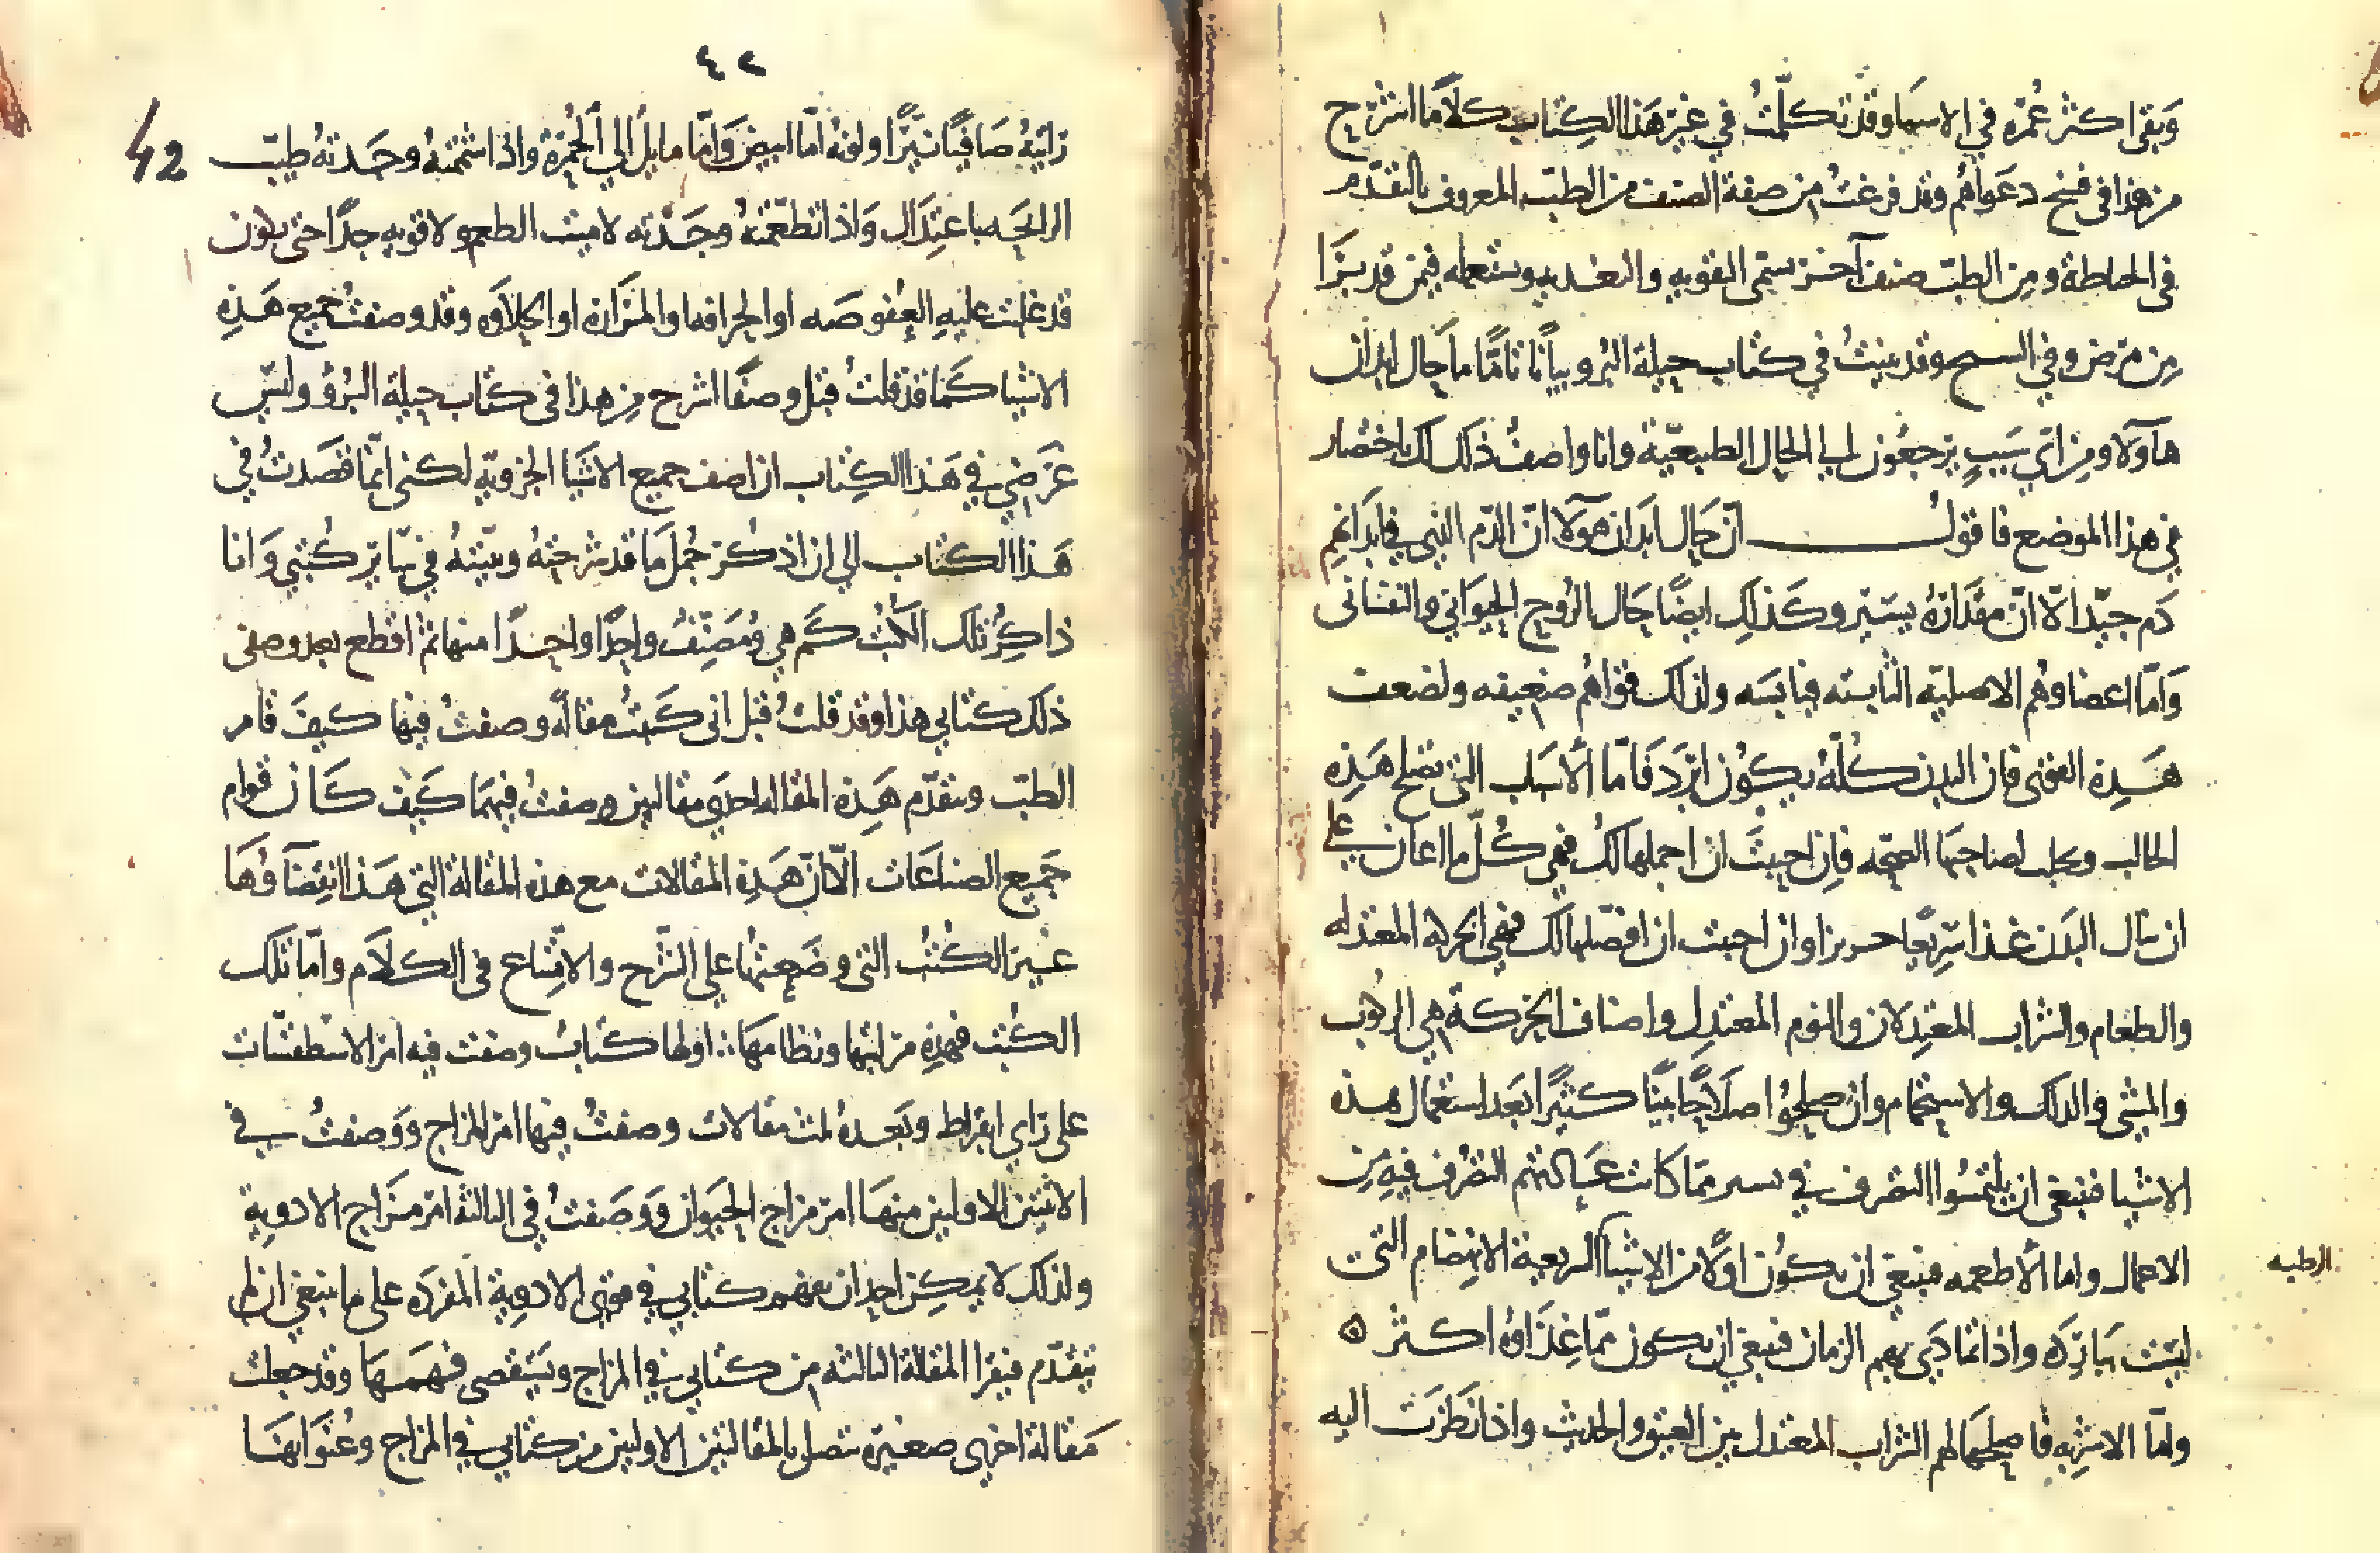 وَبَقى اكثر عُمره في الاسما وقد تكلّمتُ في غير هَذا الكِتاب كلاَمًا اشرح
من هذا في فسخ دعَواهُم وقد فرغتُ من صفة الصنف من الطبّ المعروف بالتقدّم
في الحاطة ومن الطبّ صنف آخر يسمّى التقويه والتغذيه ويستعمله فيمن قد برَا
مِن مَرَض وفي وقد بينتُ في كتاب حيلة البُرو بيانًا تامًّا ما حال ابدان
هاَولاَ ومِن اَي سَببٍ يرجعُون الى الحال الطبيعيّة وانا واصفُ ذلك لك باختصار
في هذا الموضع فاقولُ انّ حَال ابدَان هوَلا انّ الدّم الذي في ابدَانهِم
دَم جيّد الاّ انّ مقدَارهُ يسَير وكَذلِك ايضًا حَال الرُوح الحيوَاني والنفسَانى
وَامّا اعضاوهُم الاصليّه الثابته فيابسَه ولذلك قوَاهُم ضعيفه ولضعف
هَذِه القوى فان البدن كُلّهُ يكوُن ابرَد فَامّا الاَسبَاب التي تصلح هَذِه
الحال وتجلب لصاحبهَا الصحّه فاِن احببتَ ان اجملها لك فهي كُلّ ما اعان على
ان ينال البَدن غذا سَرِيعًا حريزا وان احببت ان افصّلها لك فهي الحركه المعتدله
والطعَام والشرَاب المعتدِلان والنوم المعتدِل واصناف الحركة هي الركُوب
والمشي والدلك والاستِحمَام وان صلحُوا صلاَحًا بيّنًا كثيرًا بَعد استعمال هذه
الاشيا فينبغى ان يلتمسُوا التصرف في يسير ممّا كانت عَادتهُم التصَرف فيهِ مِن
الاعمال واما الاَطعمه فينبغي ان يكوُن اولاً من الاشيا السريعة الانهضَام التى
ليسَت بَارِدَه واذا تمادَى بهم الزمان فينبغي ان يكون ممّا غِذاوهُ اكثر ٥
وامّا الاشرِبه فاصلحهَا لهم الشرَاب المعتدل بين العتيق والحديث واذا نَظرَت اليه
الرطبه
٤٢
42
رَايتهُ صَافيًا نيّرًا ولونهُ امّا ابيض وَامّا مايل الى الحُمرَة واذا اشممتهُ وجَدتهُ طيّب
الرايحَه باعتِدَال وَاذا تطعّمتهُ وجَدّته لا ميت الطعم ولا قويه جدًا حتى يكون
قد غلبت عليهِ العفوصَه او الحرافه او المرَارَه او الحلاَوَه وقد وصفتُ جميع هَذِه
الاشيا كَما قد قلتُ قبل وصفًا اشرح مِن هذا في كتاب حيلة البُرؤ وليسَ
غرَضِي في هَذا الكِتاب ان اصف جميع الاشيَا الجزويّه لكني انّما قصَدتُ في
هَذا الكتاب الي ان اذكُر جُمل مَا قد شرَحتهُ وبيّنتهُ في سَاير كُتبي وَانا
ذاكِرُ تلك الكُتبُ كَم هِي ومُصَنّفُ واحِدًا واحِدًا منها ثم اقطع بعد وصفى
ذلك كتابي هذا وقد قلتُ قبل اني كَتبتُ مقالةً وصفتُ فيها كيفَ قام
الطبّ وتتقدّم هَذِه المقاله احدَى مقالتين وصفتُ فيهمَا كَيفَ كَان قوام
جَميع الصناعَات الاّ انّ هَذِه المقالات مع هذه المقالة التي هَذا انقضَاَوُهَا
غَير الكُتُب التي وضَعتهُا على الشرَح والاقِناع فى الكلاَم وامّا تلك
الكُتب فهذِه مرَاتبها ونظامهَا ∴ اولها كتابُ وصفت فيه امر الاسطقسَّات
على رَاي ابقرَاط وبَعدهُ ثلث مقالات وصفتُ فيها امر المزاج وَوَصفتُ في
الاثنتين الاولتين منهَا امرَ مزاج الحيَوان وَوَصَفتُ في الثالثة امرَ مزَاج الادوِية
ولذلك لا يمكِن احد ان يفهم كتابي في قوى الادوِية المفرَده على ما ينبغي ان لم
يتقدّم فيقرا المقالة الثالثه من كتابي في المزاج ويستقصى فهمَهَا وقد جعلت
مَقالة اخرى صغيرَه تتصل بالمقالتين الاولتين من كتابي في المزاج وعُنوَانهَا